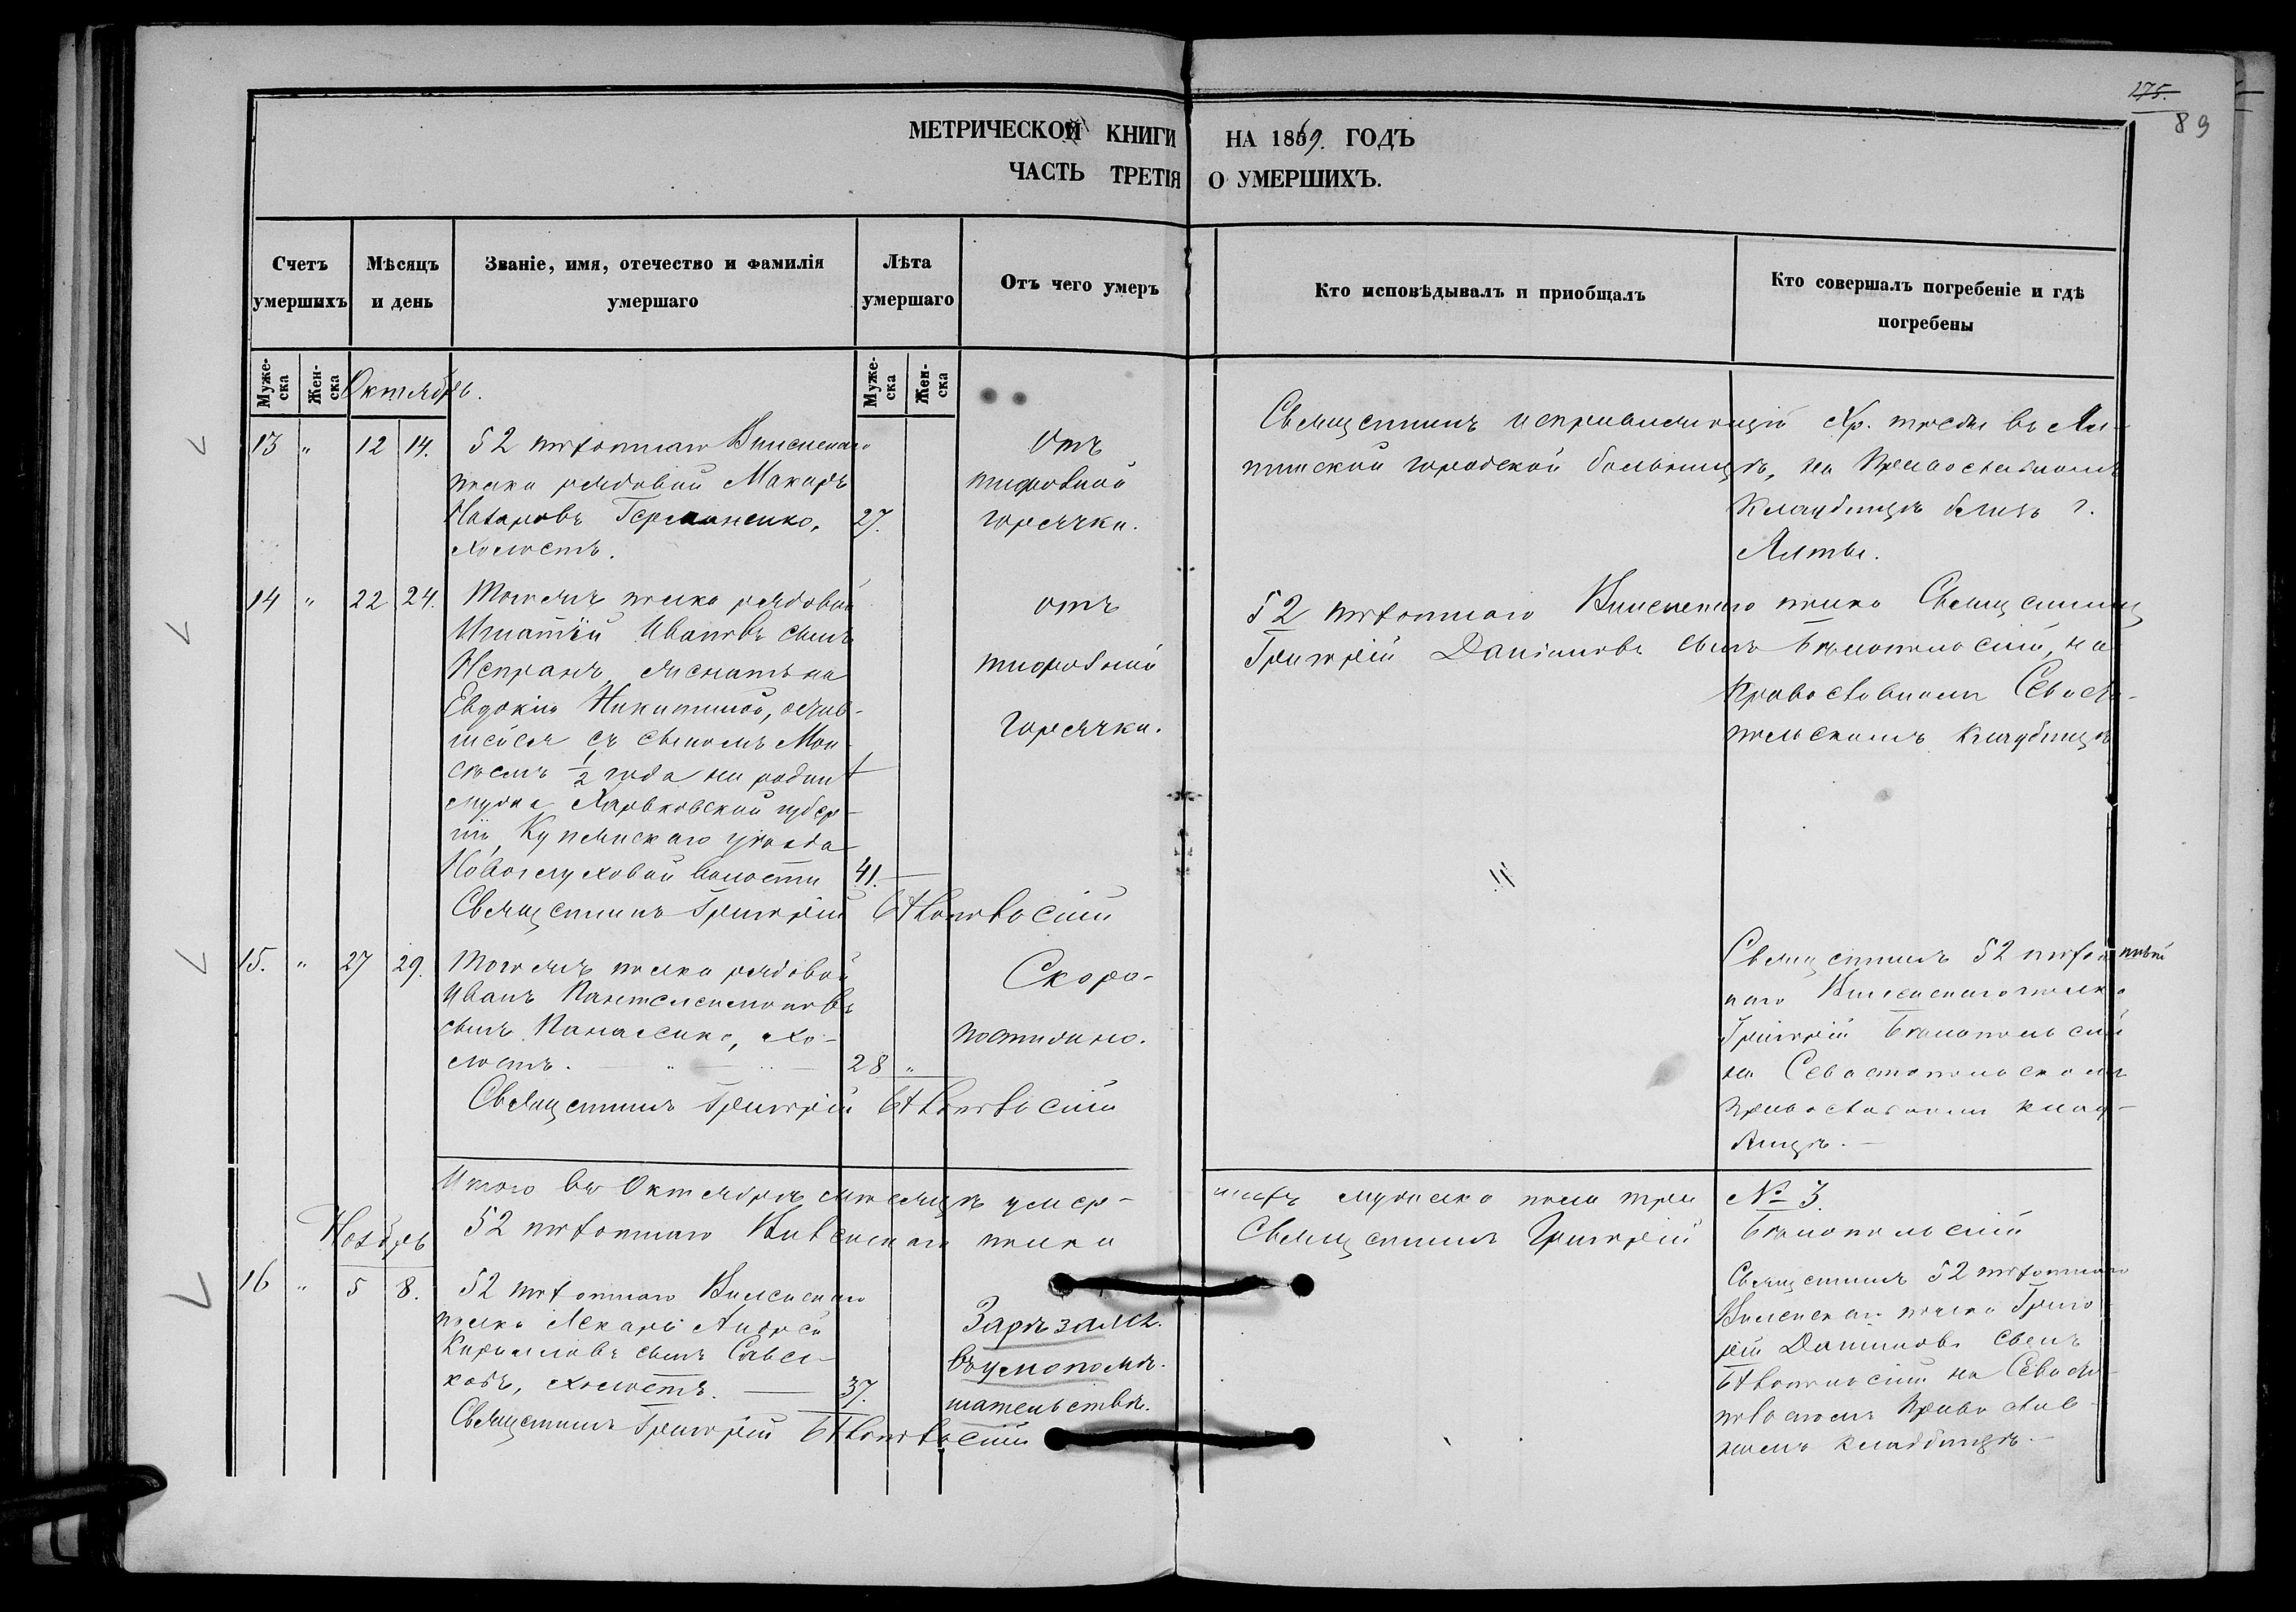 175.
89
МЕТРИЧЕСКОЙ КНИГИ НА 1869. ГОДЪ
ЧАСТЬ ТРЕТІЯ О УМЕРШИХЪ.
Счетъ умершихъ
Мѣсяцъ и день
Званіе, имя, отечество и фамилія умершаго
Лѣта умершаго
Отъ чего умеръ
Кто исповѣдывалъ и приобщалъ
Кто совершалъ погребеніе и гдѣ погребены
Муже-ска
Жен-ска
Октябрь.
Муже-ска
Жен-ска
13 " 12 14.
52 пѣхотнаго Виленскаго
полка рядовый Макаръ
Назаровъ Германенко,
холостъ.
27.
Отъ
тифозной
горячки.
Священникъ исправляющій Хр. требы въ Ял-
тинской городской больницѣ, на Православномъ
Кладбищѣ близь г.
Ялты.
14 " 22 24.
Тогожъ полка рядовый
Игнатій Ивановъ сынъ
женатъ на
Евдокіи Никитиной, остав-
шейся съ сыномъ Мои-
сеемъ 1/2 года на родинѣ
мужа Харьковской губер-
ніи, Купянскаго уѣзда
волости
41.
Священникъ Григорій Бѣлопольскій
отъ
тифозной
горячки.
52 пѣхотнаго Виленскаго полка Священникъ
Григорій Даніиловъ сынъ Бѣлопольскій, на
Православномъ Севасто-
польскомъ Кладбищѣ
"
15. " 27 29.
Тогожъ полка рядовый
Иванъ Пантелеимоновъ
сынъ Панасенко, хо-
лостъ.
28 "
Священникъ Григорій Бѣлопольскій
Скоро-
постижно.
Священникъ 52 пѣхот
наго Виленскаго полка
Григорій Бѣлопольскій
на Севастопольскомъ
Православномъ клад-
бищѣ.
Итого въ Октябрѣ мѣсяцѣ умер-
шихъ мужеска пола три № 3.
52 пѣхотнаго Виленскаго полка
Священникъ Григорій Бѣлопольскій
Ноябрь
16 " 5 8.
52 пѣхотнаго Виленскаго
полка Лекарь Андрей
Кирилловъ сынъ Савель-
холостъ.
37.
Священникъ Григорій Бѣлопольскій
Зарѣзался.
въ умопомѣ-
шательствѣ.
Священникъ 52 пѣхотнаго
Виленскаго полка Григо-
рій Даніиловъ сынъ
Бѣлопольскій на Севасто-
польскомъ Православ-
номъ кладбищѣ.